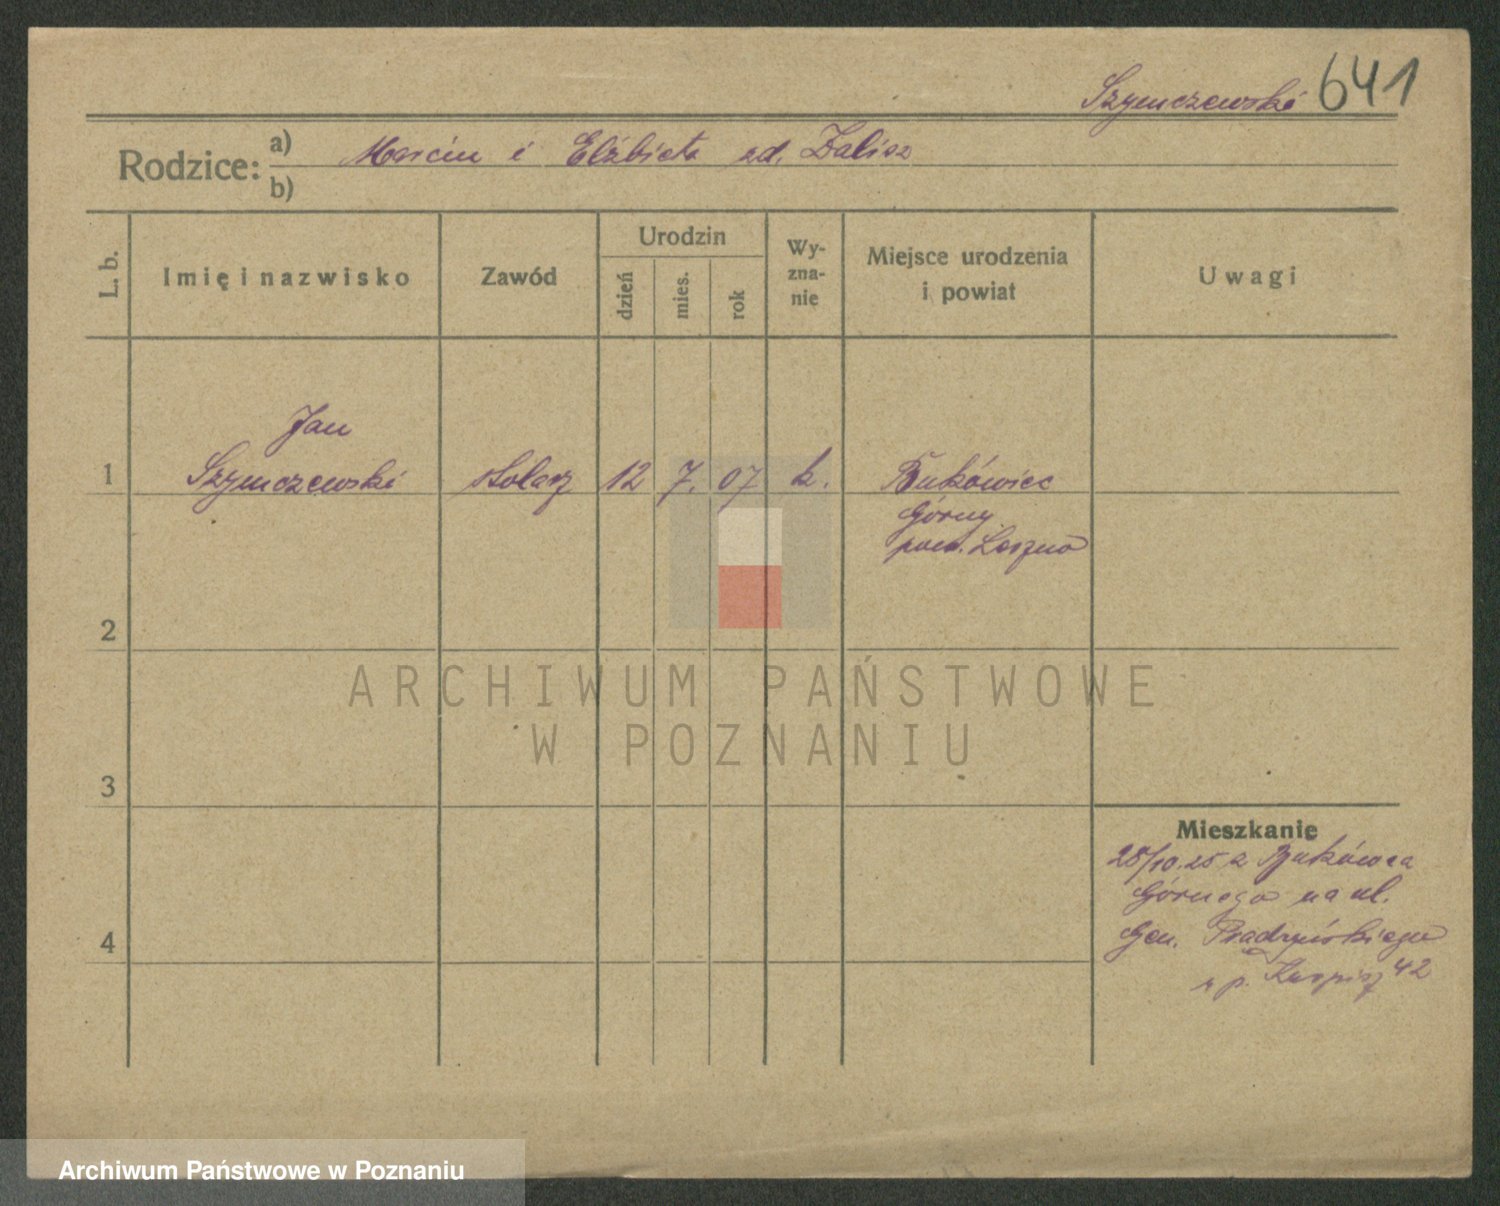 Szymczewski 641
Rodzice: a) Marcin i Elżbieta zd. Dalisz
b)
L. b. Imię i nazwisko Zawód Urodzin dzień mies. rok Wy-zna-nie Miejsce urodzenia i powiat Uwagi
Jan
1 Szymczewski stolarz 12 7. 07 k. Bukówiec
Górny
pow. Leszno
2
ARCHIWUM PAŃSTWOWE
W POZNANIU
3
Mieszkanie
28/10.25 z Bukówca
Górnego na ul.
4 Gen. Prądzyńskiego
u p. 42
Archiwum Państwowe w Poznaniu